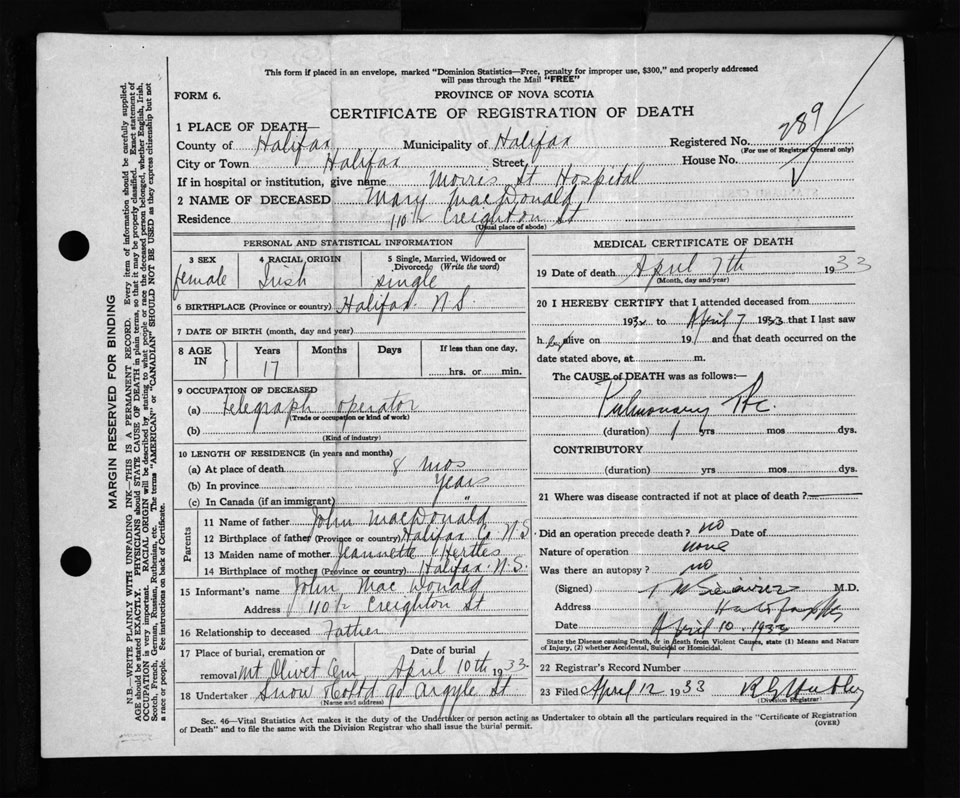 This form if placed in an envelope, marked "Dominion Statistics—Free, penalty for improper use, $300," and properly addressed
will pass through the Mail "FREE"
FORM 6.
PROVINCE OF NOVA SCOTIA
CERTIFICATE OF REGISTRATION OF DEATH
1 PLACE OF DEATH—
County of Halifax Municipality of Halifax Registered No. 289
(For use of Registrar General only)
City or Town Halifax Street House No.
If in hospital or institution, give name Morris St Hospital
2 NAME OF DECEASED Mary MacDonald
Residence 110½ Creighton St
(Usual place of abode)
PERSONAL AND STATISTICAL INFORMATION
3 SEX 4 RACIAL ORIGIN 5 Single, Married, Widowed or
Divorced (Write the word)
female Irish single
6 BIRTHPLACE (Province or country) Halifax N.S.
7 DATE OF BIRTH (month, day and year)
8 AGE IN Years Months Days If less than one day,
17 hrs. or min.
9 OCCUPATION OF DECEASED
(a) telegraph operator
(Trade or occupation or kind of work)
(b)
(Kind of industry)
10 LENGTH OF RESIDENCE (in years and months)
(a) At place of death 8 mos
(b) In province years
(c) In Canada (if an immigrant) "
Parents
11 Name of father John MacDonald
12 Birthplace of father (Province or country) Halifax Co N.S.
13 Maiden name of mother Jeannette Hertles
14 Birthplace of mother (Province or country) Halifax. N.S.
15 Informant's name John Mac Donald
Address 110½ Creighton St
16 Relationship to deceased Father
17 Place of burial, cremation or Date of burial
removal Mt Olivet Cem April 10th 1933
18 Undertaker Snow & Co Ltd 90 Argyle St
(Name and address)
MEDICAL CERTIFICATE OF DEATH
19 Date of death April 7th 1933
(Month, day and year)
20 I HEREBY CERTIFY that I attended deceased from
1932 to April 7 1933 that I last saw
h er alive on 19 and that death occurred on the
date stated above, at m.
The CAUSE of DEATH was as follows:—
Pulmonary Tbc.
(duration) 1 yrs mos dys.
CONTRIBUTORY
(duration) yrs mos dys.
21 Where was disease contracted if not at place of death?
Did an operation precede death? no Date of
Nature of operation none
Was there an autopsy? no
(Signed) M.D.
Address Halifax
Date April 10 1933
State the Disease causing Death, or in Death from Violent Causes, state (1) Means and Nature
of Injury, (2) whether Accidental, Suicidal or Homicidal.
22 Registrar's Record Number
23 Filed April 12 1933
(Division Registrar)
Sec. 46—Vital Statistics Act makes it the duty of the Undertaker or person acting as Undertaker to obtain all the particulars required in the "Certificate of Registration
of Death" and to file the same with the Division Registrar who shall issue the burial permit.
(OVER)
MARGIN RESERVED FOR BINDING
N.B.—WRITE PLAINLY WITH UNFADING INK—THIS IS A PERMANENT RECORD. Every item of information should be carefully supplied.
AGE should be stated EXACTLY. PHYSICIANS should STATE CAUSE OF DEATH in plain terms, so that it may be properly classified. Exact statement of
OCCUPATION is very important. RACIAL ORIGIN will be described by stating to what people or race the deceased person belonged, whether English, Irish,
Scotch, French, German, Russian, Ruthenian, etc. The terms "AMERICAN" or "CANADIAN" SHOULD NOT BE USED as they express citizenship but not
a race or people. See instructions on back of Certificate.